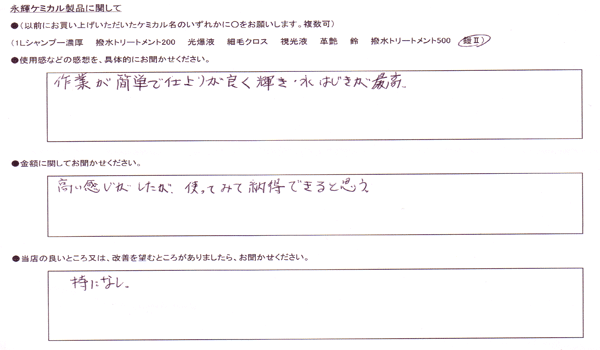 永輝ケミカル製品に関して
●(以前にお買い上げいただいたケミカル名のいずれかに○をお願いします。複数可)
(1Lシャンプー濃厚 撥水トリートメント200 光爆液 細毛クロス 視光液 革艶 鈴 撥水トリートメント500 鏡Ⅱ)
●使用感などの感想を、具体的にお聞かせください。
作業が簡単で仕上りが良く輝き・水はじきが最高。
●金額に関してお聞かせください。
高い感じがしたが、使ってみて納得できると思う。
●当店の良いところ又は、改善を望むところがありましたら、お聞かせください。
特になし。